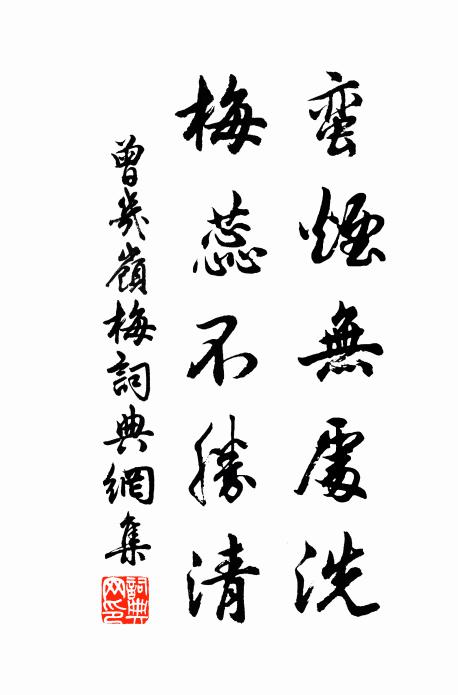 蛮煙無處洗
梅蕊不勝清
曾幾嶺梅詞典網集
詞典網印